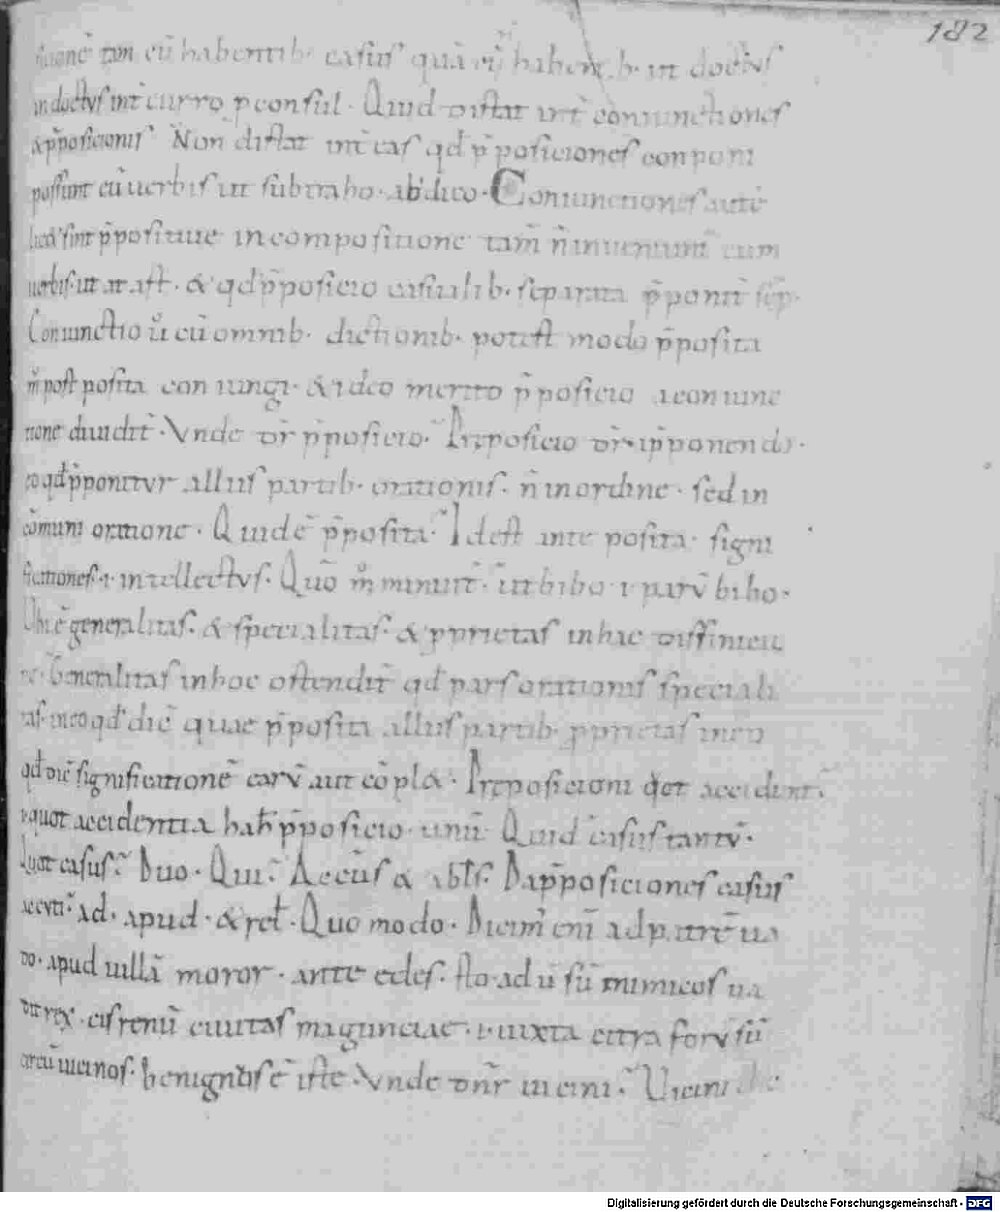 182
tam cū habentib· casus quā cū habent· b· ut doctus
indoctus int̄ curro· ꝓconsul· Quid distat int̄ coniunctiones
& p̄posicionis Non distat int̄ eas qđ p̄posiciones conponi
possunt cū uerbis ut subtraho· abdico· Coniunctiones autē
sint p̄positiue in compositione tam̄ n̄ inueniunt̄ cum
uerbis· ut at ast· & qđ p̄posicio casualib· separata p̄ponit̄ semp̄·
Coniunctio ů cū omnib· dictionib· potest modo p̄posita
m̊ postposita coniungi· & ideo merito p̄posicio a coniunc
tione diuidit̄· Vnde dr̄ p̄posicio· Prępositio dr̄ ip̄ponendo·
eo qđ p̄ponitur alliis partib· orationis· n̄ in ordine· sed in
cōmuni oratione· Quid ē p̄posita· Id est ante posita· signi
ficationes· ł intellectus· Quō m̄minuit· ut bibo ł parū bibo·
Vbi ē generalitas· & specialitas· & ꝓprietas in hac diffinicio
ne· Generalitas in hoc ostendit̄ qđ pars orationis speciali
tas· in eo qđ diē quae p̄posita alliis partib· ꝓprietas in eo
qđ diē significationē earū aut cōplet· Prępositioni qđt accidunt̄·
ł quot accidentia hab& p̄posicio· unū· Quid casus tantū·
Quot casus· Duo· Qui· Accūs & abls· Da p̄posiciones casus
accuti· ad· apud· & rel· Quo modo· Dicim̄ eni ad patrē ua
do· apud uillā moror· ante edes· sto· aduersū inimicos ua
dit rex· cis renū ciuitas magunciae· ł iuxta citra forū sū
circū uicinos· benignus ē iste· Vnde dn̄r uicini· Vicini
Digitalisierung gefördert durch die Deutsche Forschungsgemeinschaft - DFG